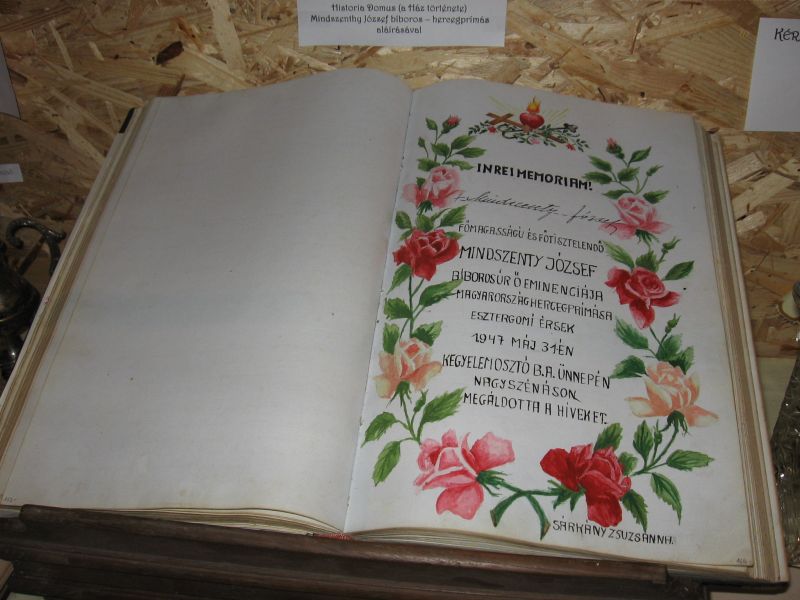 Historia Domus (a Ház története)
Mindszenthy József bíboros – hercegprímás
aláírásával
KÉR
IN REI MEMORIAM!
Mindszenty József
FŐMAGASSÁGÚ ÉS FŐTISZTELENDŐ
MINDSZENTY JÓZSEF
BÍBOROS ÚR Ő EMINENCIÁJA
MAGYARORSZÁG HERCEGPRÍMÁSA
ESZTERGOMI ÉRSEK
1947 MÁJ 31-ÉN
KEGYELEMOSZTÓ B.A. ÜNNEPÉN
NAGYSZÉNÁSON
MEGÁLDOTTA A HÍVEKET.
SÁRKÁNY ZSUZSÁNNA.